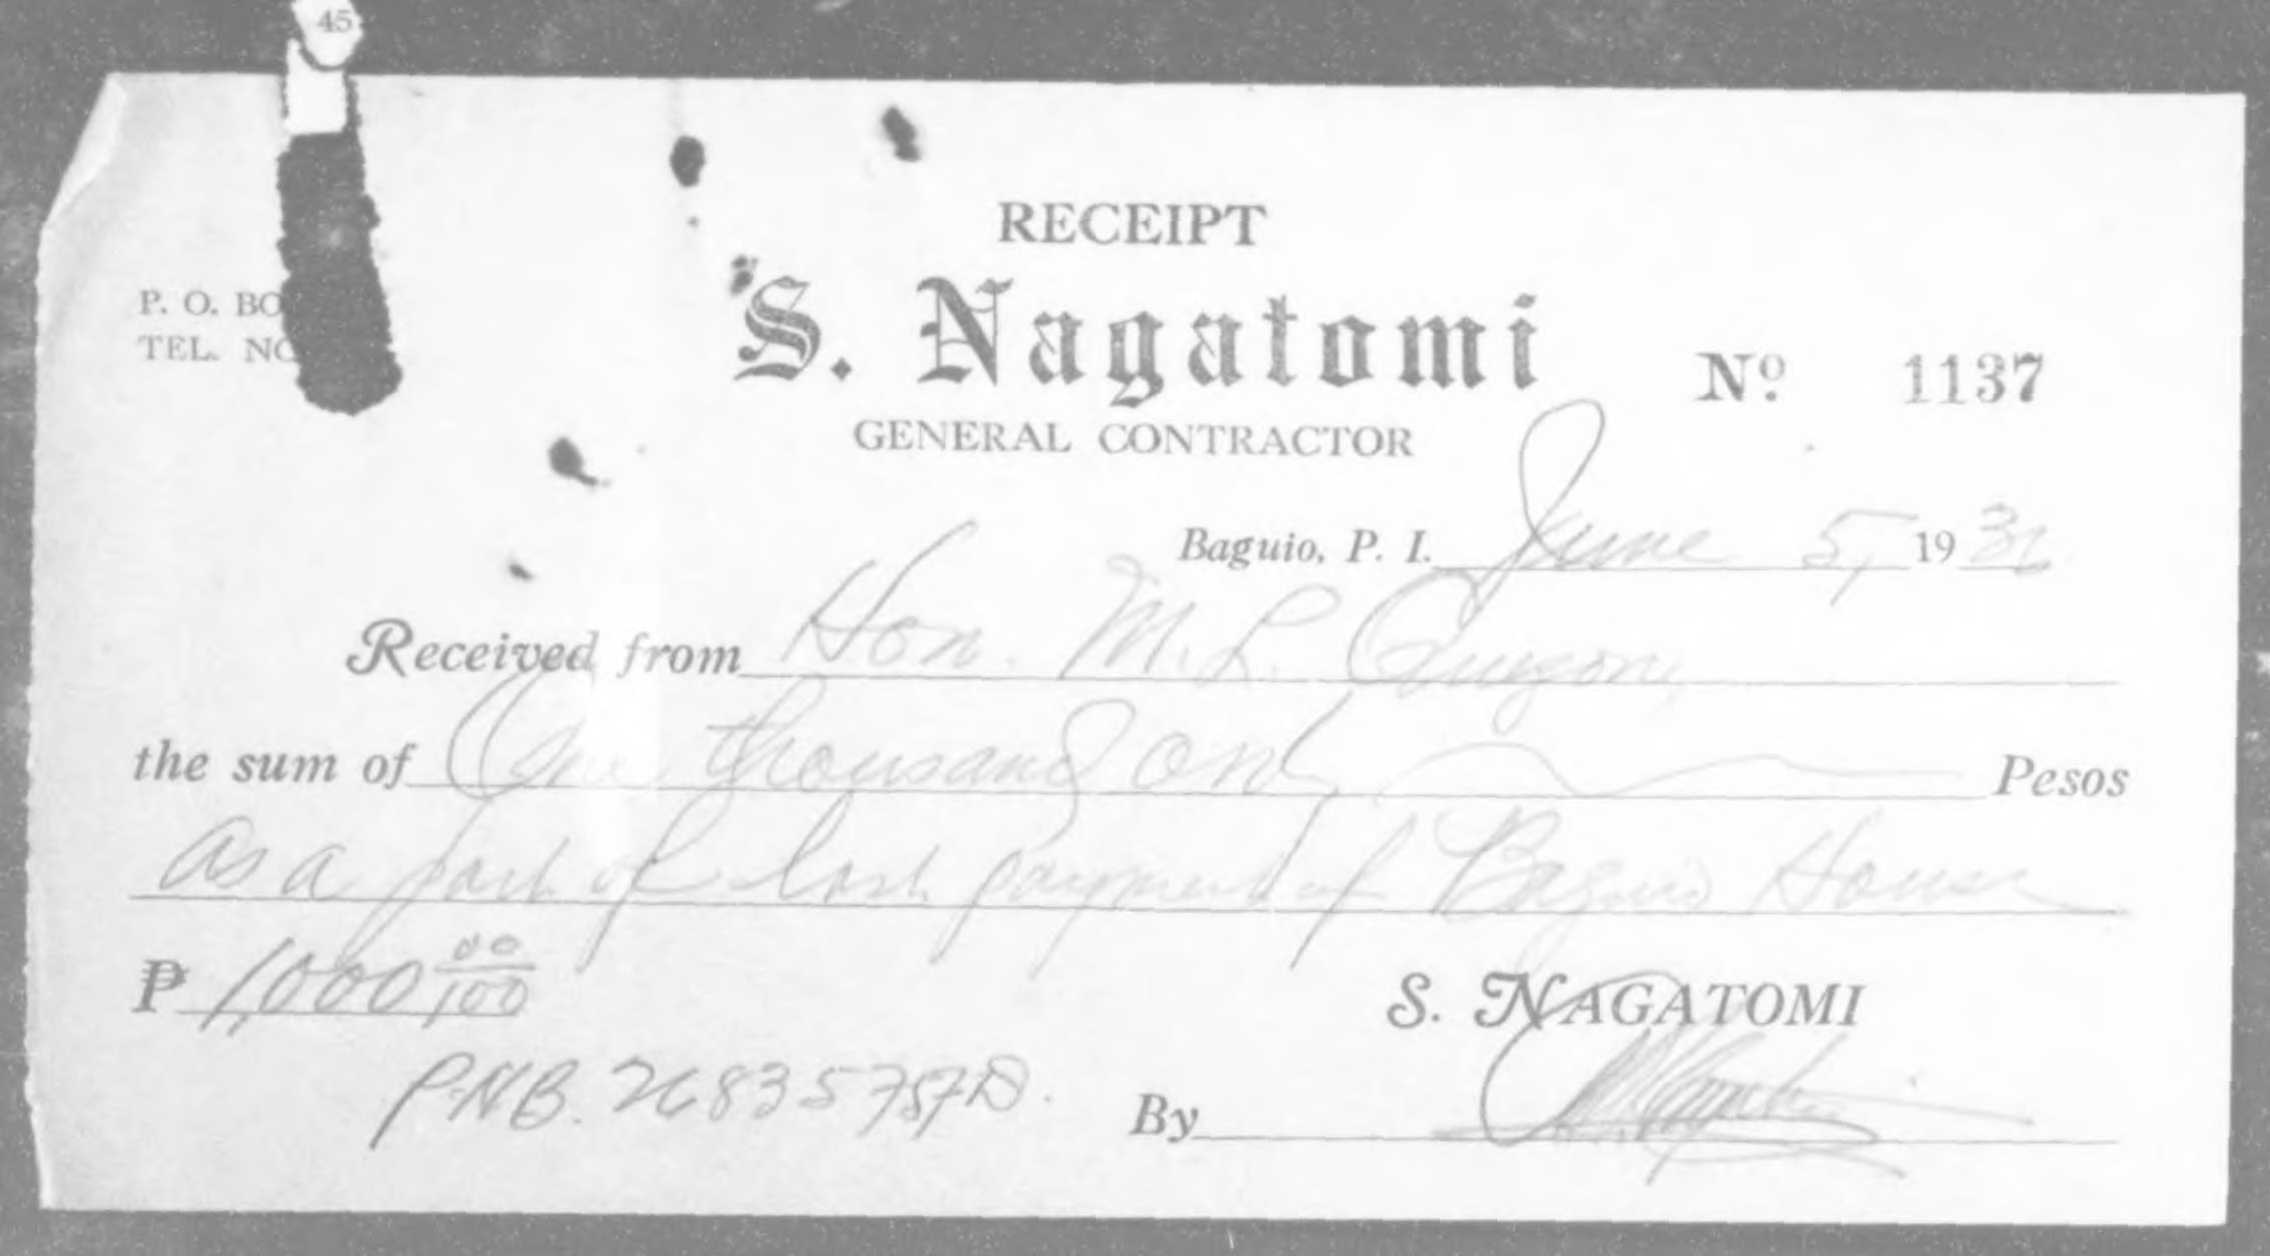 45
RECEIPT
P. O. BO
TEL. NO
S. Nagatomi
Nº 1137
GENERAL CONTRACTOR
Baguio, P. I. June 5, 19
Received from Hon. M. L.
the sum of One thousand only Pesos
as a part of last payment of Baguio House
₱ 1,000 00/100
S. NAGATOMI
P.N.B.
By